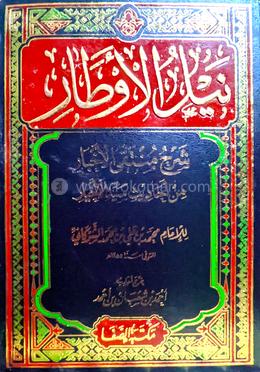 نيل الأوطار
شرح منتقى الأخبار
من أحاديث سيد الأخيار
للإمام محمد بن علي بن محمد الشوكاني
المتوفى سنة ١٢٥٥هـ
أحمد بن شعبان بن أحمد
مكتبة الصفا